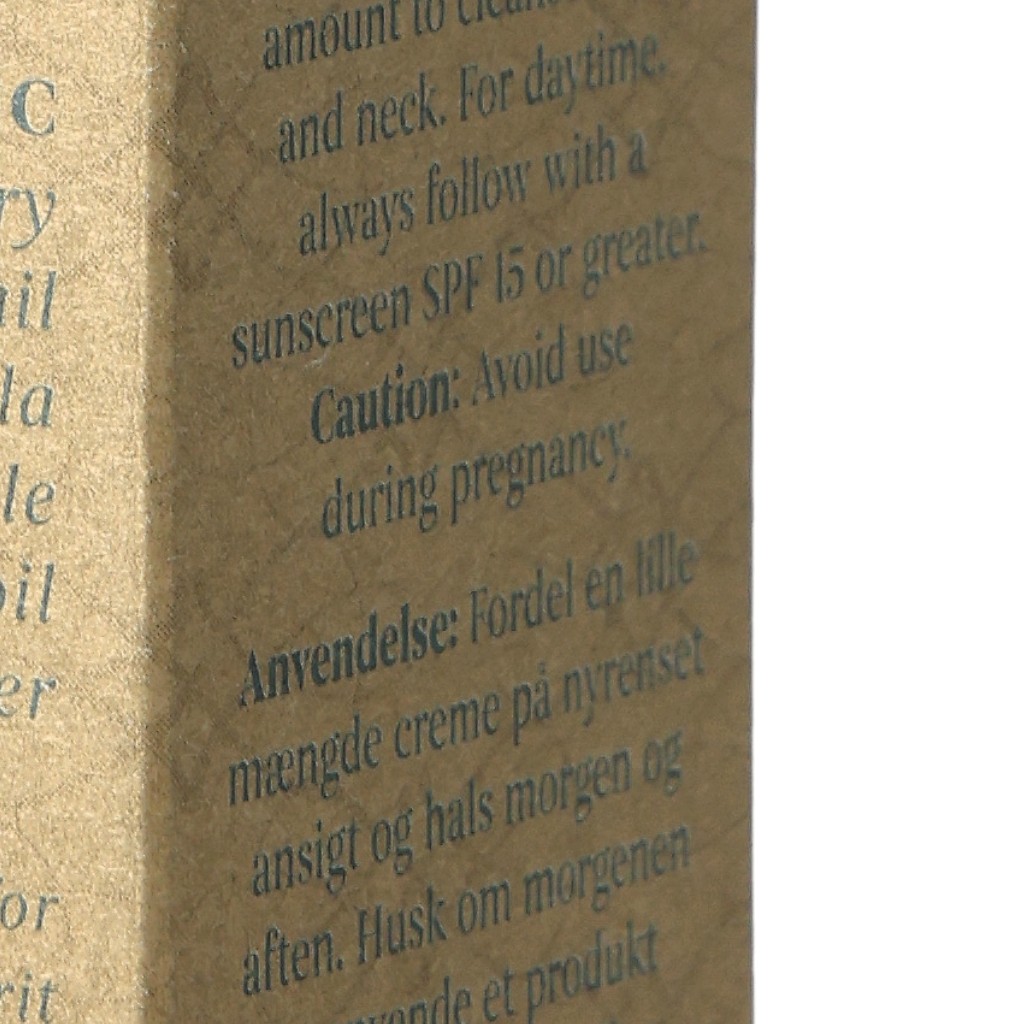 C
ry
il
la
le
oil
er
for
rit
amount to
and neck. For daytime,
always follow with a
sunscreen SPF 15 or greater.
Caution: Avoid use
during pregnancy.
Anvendelse: Fordel en lille
mængde creme på nyrenset
ansigt og hals morgen og
aften. Husk om morgenen
et produkt